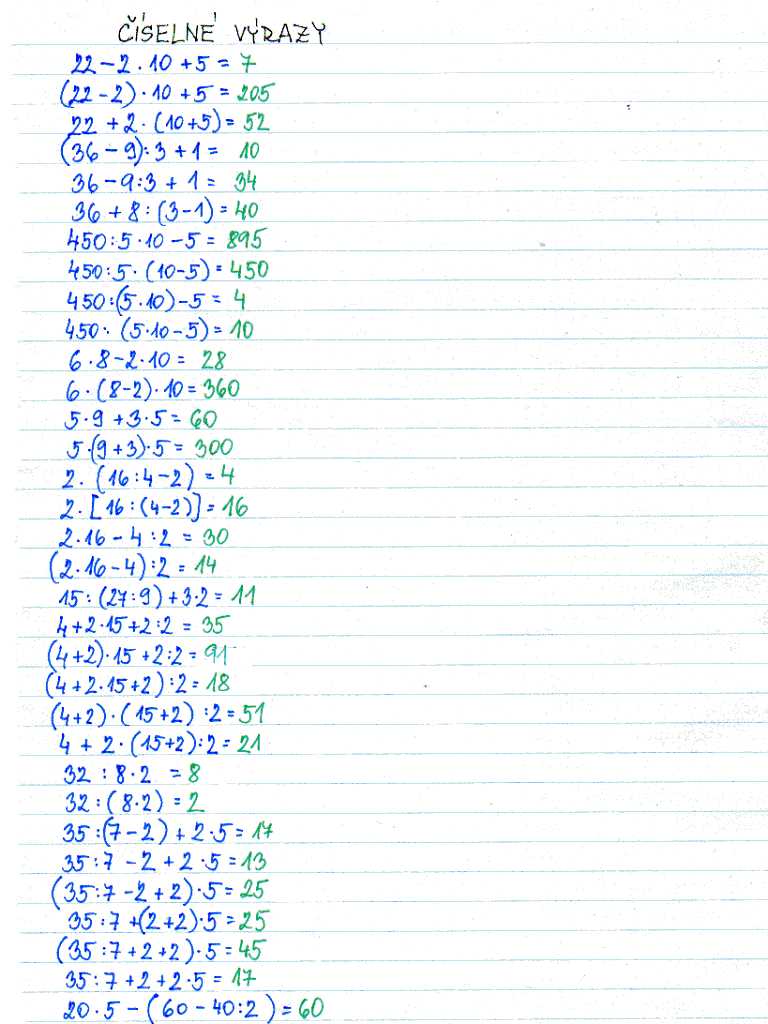 ČÍSELNÉ VÝRAZY
22 - 2 · 10 + 5 = 7
(22 - 2) · 10 + 5 = 205
22 + 2 · (10 + 5) = 52
(36 - 9) : 3 + 1 = 10
36 - 9 : 3 + 1 = 34
36 + 8 : (3 - 1) = 40
450 : 5 · 10 - 5 = 895
450 : 5 · (10 - 5) = 450
450 : (5 · 10) - 5 = 4
450 : (5 · 10 - 5) = 10
6 · 8 - 2 · 10 = 28
6 · (8 - 2) · 10 = 360
5 · 9 + 3 · 5 = 60
5 · (9 + 3) · 5 = 300
2 · (16 : 4 - 2) = 4
2 · [16 : (4 - 2)] = 16
2 · 16 - 4 : 2 = 30
(2 · 16 - 4) : 2 = 14
15 : (27 : 9) + 3 · 2 = 11
4 + 2 · 15 + 2 : 2 = 35
(4 + 2) · 15 + 2 : 2 = 91
(4 + 2 · 15 + 2) : 2 = 18
(4 + 2) · (15 + 2) : 2 = 51
4 + 2 · (15 + 2) : 2 = 21
32 : 8 · 2 = 8
32 : (8 · 2) = 2
35 : (7 - 2) + 2 · 5 = 17
35 : 7 - 2 + 2 · 5 = 13
(35 : 7 - 2 + 2) · 5 = 25
35 : 7 + (2 + 2) · 5 = 25
(35 : 7 + 2 + 2) · 5 = 45
35 : 7 + 2 + 2 · 5 = 17
20 · 5 - (60 - 40 : 2) = 60